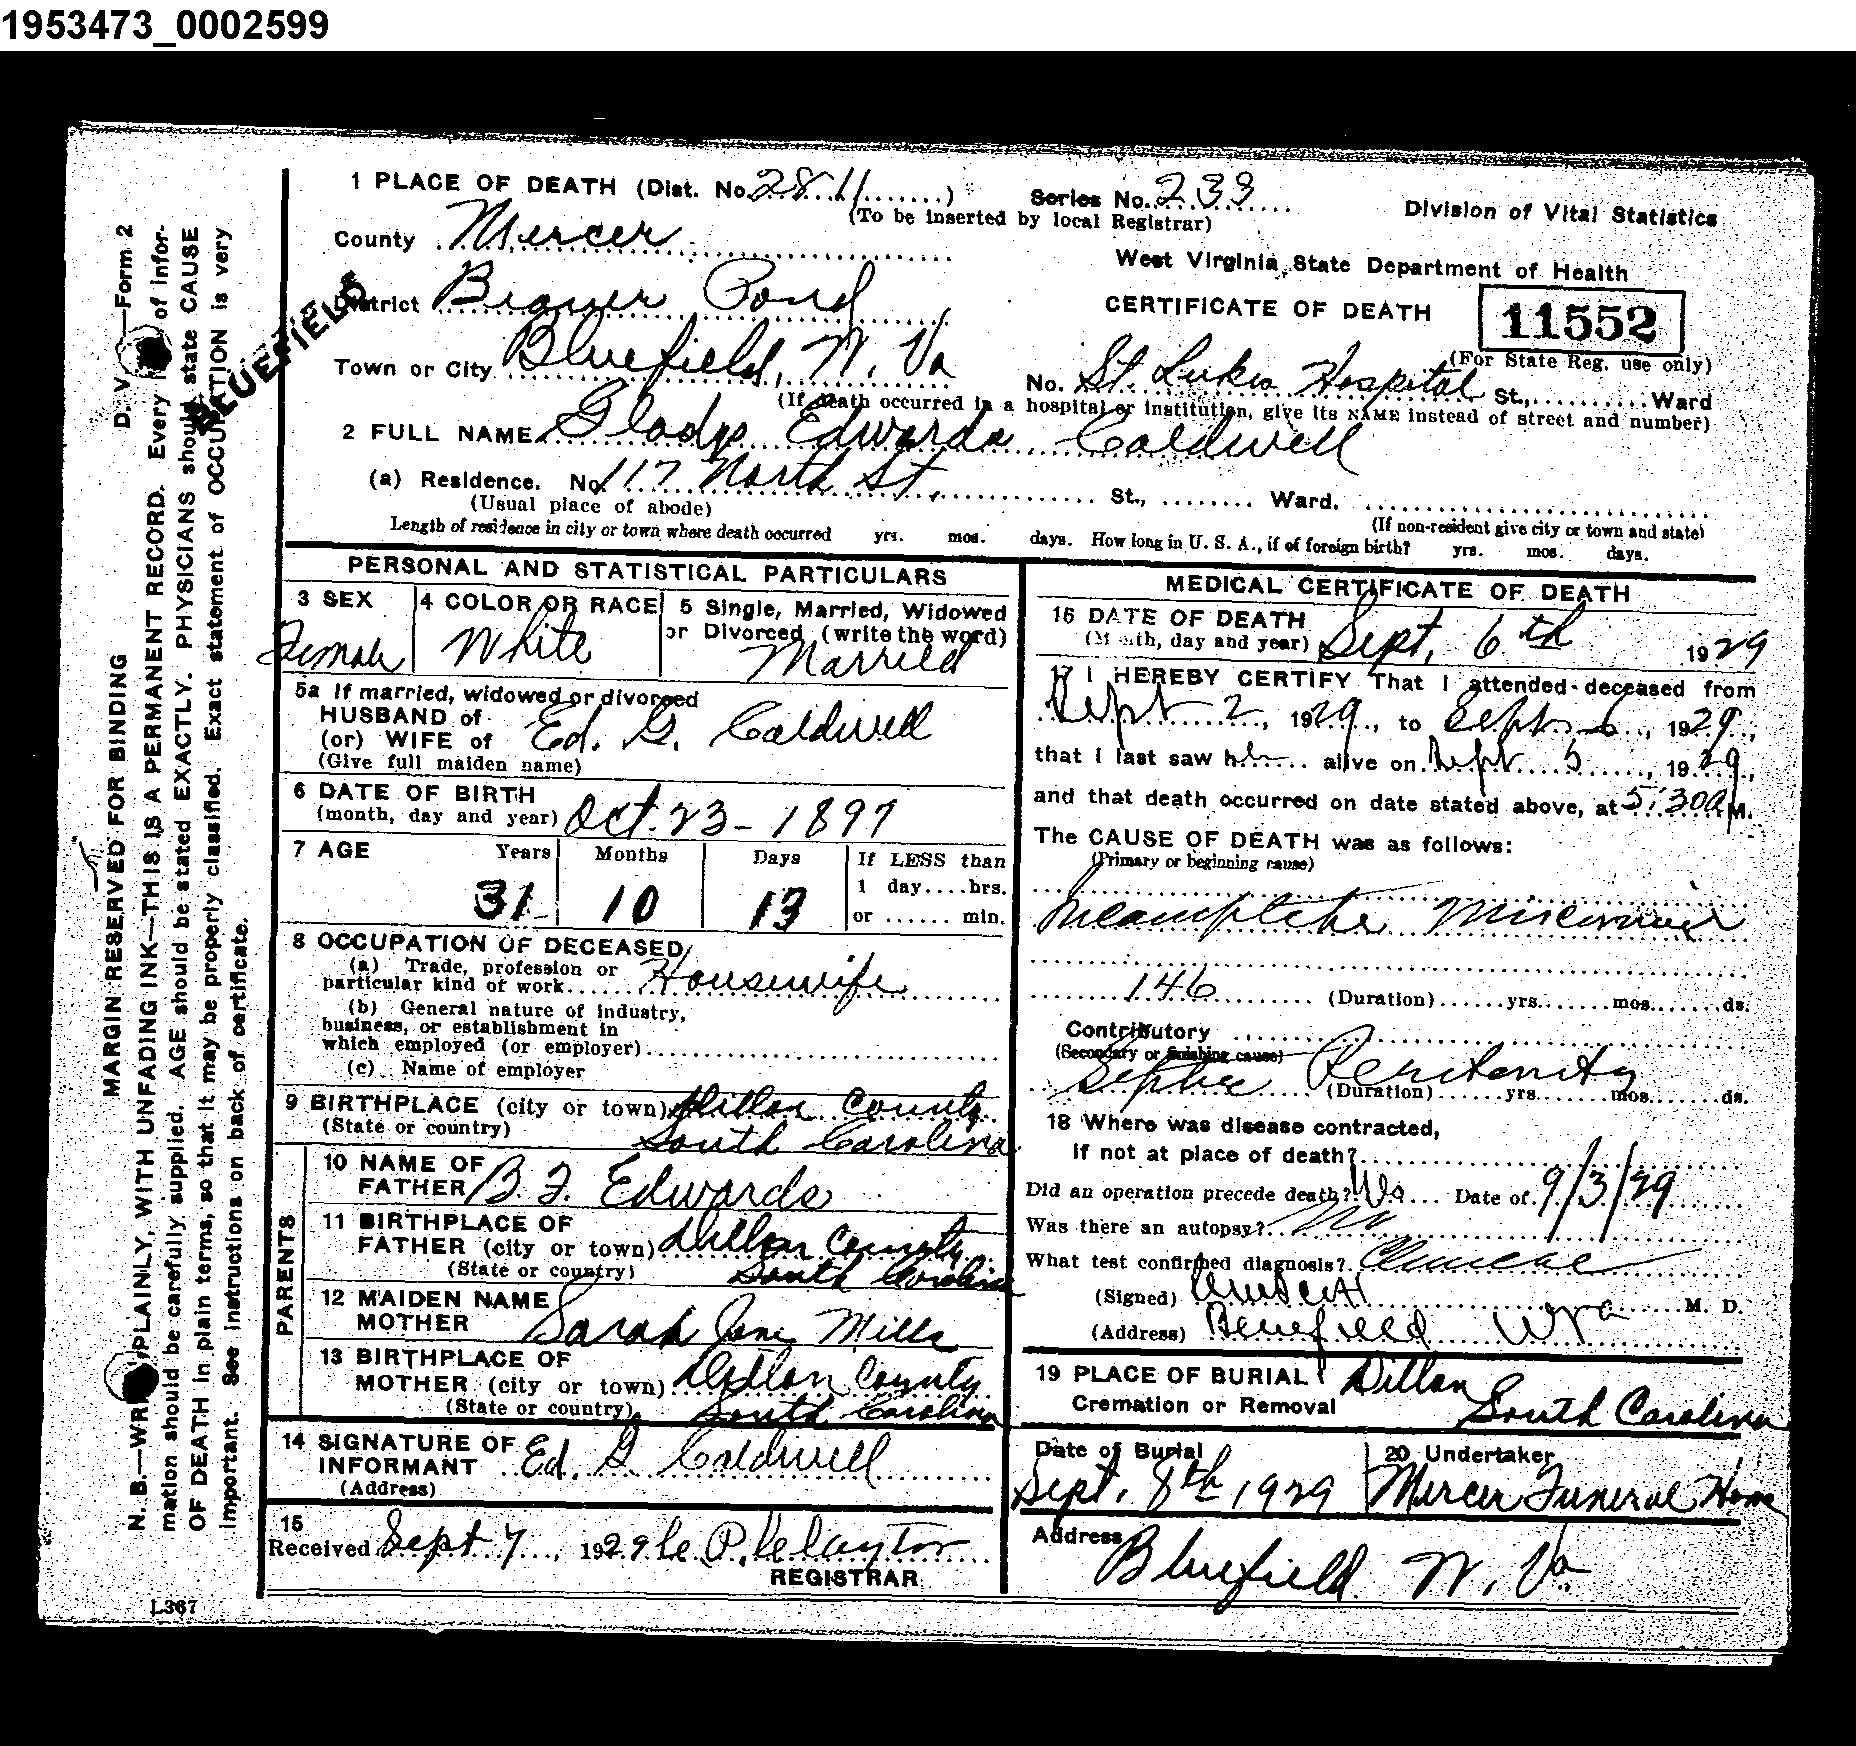 1953473_0002599
1 PLACE OF DEATH (Dist. No. 2811) Series No. 233
(To be inserted by local Registrar)
Division of Vital Statistics
County Mercer
West Virginia State Department of Health
District Beaver Pond
BLUEFIELD
CERTIFICATE OF DEATH 11552
(For State Reg. use only)
Town or City Bluefield, W. Va No. St. Lukes Hospital St., Ward
(If death occurred in a hospital or institution, give its NAME instead of street and number)
2 FULL NAME Gladys Edwards Caldwell
(a) Residence. No. 117 North St. St., Ward.
(Usual place of abode) (If non-resident give city or town and state)
Length of residence in city or town where death occurred yrs. mos. days. How long in U. S. A., if of foreign birth? yrs. mos. days.
PERSONAL AND STATISTICAL PARTICULARS
3 SEX
Female
4 COLOR OR RACE
White
5 Single, Married, Widowed
or Divorced (write the word)
Married
5a If married, widowed or divorced
HUSBAND of
(or) WIFE of Ed. G. Caldwell
(Give full maiden name)
6 DATE OF BIRTH
(month, day and year) Oct. 23 - 1897
7 AGE Years Months Days If LESS than
1 day....hrs.
31 10 13
or ...... min.
8 OCCUPATION OF DECEASED
(a) Trade, profession or
particular kind of work Housewife
(b) General nature of industry,
business, or establishment in
which employed (or employer)
(c) Name of employer
9 BIRTHPLACE (city or town) Dillon County
(State or country) South Carolina
PARENTS
10 NAME OF
FATHER B. F. Edwards
11 BIRTHPLACE OF
FATHER (city or town) Dillon County
(State or country) South Carolina
12 MAIDEN NAME
MOTHER Sarah Jane Mills
13 BIRTHPLACE OF
MOTHER (city or town) Dillon County
(State or country) South Carolina
14 SIGNATURE OF
INFORMANT Ed. G Caldwell
(Address)
15
Received Sept 7, 1929 P. Clayton
REGISTRAR
MEDICAL CERTIFICATE OF DEATH
16 DATE OF DEATH
(Month, day and year) Sept. 6th 1929
17 I HEREBY CERTIFY That I attended deceased from
Sept 2, 1929, to Sept 6, 1929,
that I last saw her alive on Sept 5, 1929,
and that death occurred on date stated above, at 5:30a M.
The CAUSE OF DEATH was as follows:
(Primary or beginning cause)
Incomplete
146 (Duration) yrs. mos. ds.
Contributory
(Secondary or finishing cause)
Peritonitis
(Duration) yrs. mos. ds.
18 Where was disease contracted,
if not at place of death?
Did an operation precede death? Date of 9/3/29
Was there an autopsy? No
What test confirmed diagnosis? Clinical
(Signed) M. D.
(Address) Bluefield W Va
19 PLACE OF BURIAL Dillon
Cremation or Removal South Carolina
Date of Burial
Sept. 8th 1929
20 Undertaker
Mercer Funeral Home
Address
Bluefield W. Va
D. V.—Form 2
MARGIN RESERVED FOR BINDING
N. B.—WRITE PLAINLY, WITH UNFADING INK—THIS IS A PERMANENT RECORD. Every of infor-
mation should be carefully supplied. AGE should be stated EXACTLY. PHYSICIANS should state CAUSE
OF DEATH in plain terms, so that it may be properly classified. Exact statement of OCCUPATION is very
important. See instructions on back of certificate.
L367